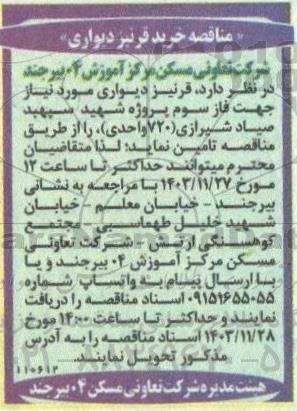 « مناقصه خرید قرنیز دیواری»
شرکت تعاونی مسکن مرکز آموزش ۰۴ بیرجند
در نظر دارد، قرنیز دیواری مورد نیاز
جهت فاز سوم پروژه شهید سپهبد
صیاد شیرازی(۷۲۰واحدی)، را از طریق
مناقصه تامین نماید؛ لذا متقاضیان
محترم میتوانند حداکثر تا ساعت ۱۲
مورخ ۱۴۰۳/۱۱/۲۷ با مراجعه به نشانی
بیرجند - خیابان معلم - خیابان
شهید خلیل طهماسبی - مجتمع
کوهسنگی ارتش - شرکت تعاونی
مسکن مرکز آموزش ۰۴ بیرجند و یا
با ارسال پیام به واتساپ شماره
۰۹۱۵۱۶۵۵۰۵۵ اسناد مناقصه را دریافت
نمایند و حداکثر تا ساعت ۱۴:۰۰ مورخ
۱۴۰۳/۱۱/۲۸ اسناد مناقصه را به آدرس
مذکور تحویل نمایند.
۱۱۰۶۱۲
هیئت مدیره شرکت تعاونی مسکن ۰۴ بیرجند